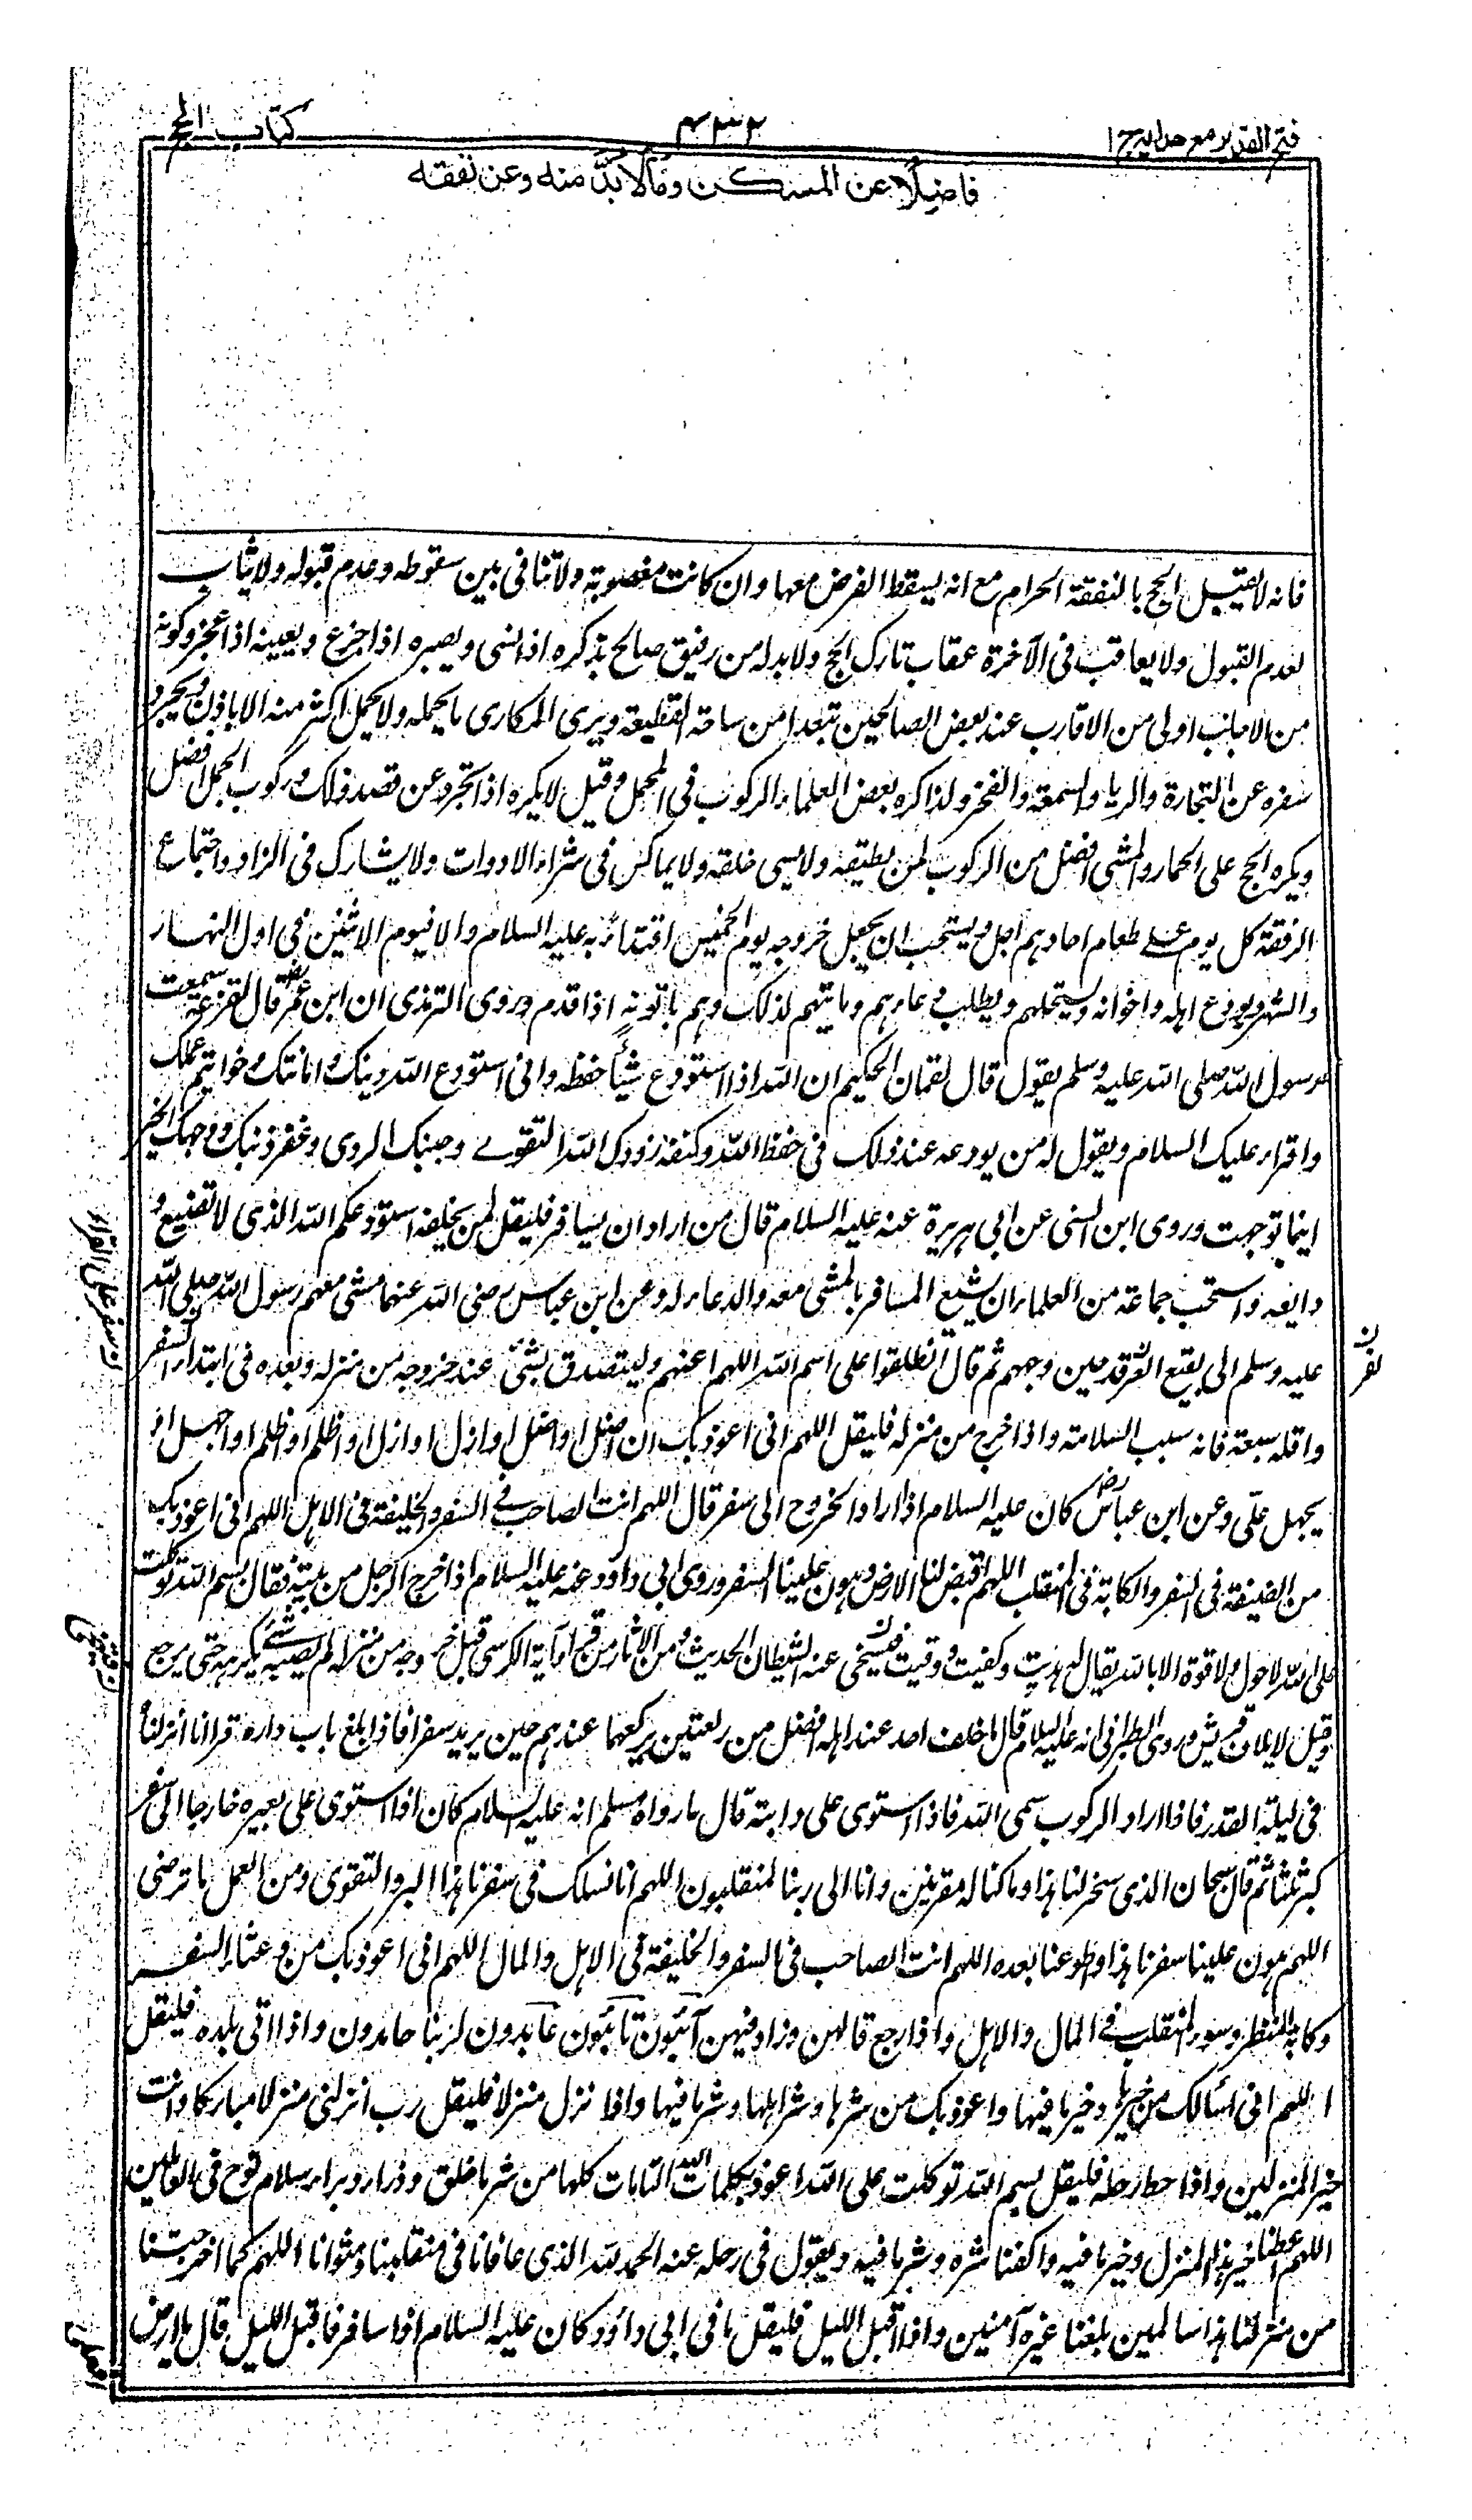 فتح القدير مع هدايه ج ١
٤٣٢
كتاب الحج
فاضلًا عن المسكن ومالا بدّ منه وعن نفقة
فانه لا يقبل الحج بالنفقة الحرام مع انه يسقط الفرض معها وان كانت مغصوبة ولا تنافى بين سقوطه وعدم قبوله ولا يثاب
لعدم القبول ولا يعاقب فى الآخرة عقاب تارك الحج ولا بد له من رفيق صالح يذكره اذا نسى ويصبره اذا جزع ويعينه اذا عجز وكونه
من الاجانب اولى من الاقارب عند بعض الصالحين تبعدا من ساحة القطيعة ويرى المكارى ما يحمله ولا يحمل اكثر منه الا باذنه ويجرد
سفره عن التجارة والرياء والسمعة والفخر ولذا كره بعض العلماء الركوب فى المحمل وقيل لا يكره اذا تجرد عن قصد ذلك وركوب الجمل افضل
ويكره الحج على الحمار والمشى افضل من الركوب لمن يطيقه ولا يسى خلقه ولا يماكس فى شراء الادوات ولا يشارك فى الزاد واجتماع
الرفقة كل يوم على طعام احدهم احل ويستحب ان يجعل خروجه يوم الخميس اقتداء به عليه السلام والا فيوم الاثنين فى اول النهار
والشهر ويودع اهله واخوانه ويستحلهم ويطلب دعاءهم وياتيهم لذلك وهم ياتونه اذا قدم وروى الترمذى ان ابن عمر رض قال لقزعة سمعت
رسول الله صلى الله عليه وسلم يقول قال لقمان الحكيم ان الله اذا استودع شيئا حفظه وانى استودع الله دينك وامانتك وخواتيم عملك
واقرأ عليك السلام ويقول له من يودعه عند ذلك فى حفظ الله وكنفه زودك الله التقوى وجنبك الردى وغفر ذنبك ووجهك الخير
اينما توجهت وروى ابن السنى عن ابى هريرة عنه عليه السلام قال من اراد ان يسافر فليقل لمن يخلفه استودعكم الله الذى لا تضيع و
دايعه واستحب جماعة من العلماء ان يشيع المسافر بالمشى معه والدعاء له وعن ابن عباس رضى الله عنهما مشى معهم رسول الله صلى الله
عليه وسلم الى بقيع الغرقد حين وجههم ثم قال انطلقوا على اسم الله اللهم اعنهم وليتصدق بشئ عند خروجه من منزله وبعده فى ابتداء السفر
واقله سبعة فانه سبب السلامة واذا خرج من منزله فليقل اللهم انى اعوذ بك ان اضل او اضل او ازل او ازل او اظلم او اظلم او اجهل او
يجهل علّى وعن ابن عباس رض كان عليه السلام اذا اراد الخروج الى سفر قال اللهم انت الصاحب فى السفر والخليفة فى الاهل اللهم انى اعوذ بك
من الضيفة فى السفر والكابة فى المنقلب اللهم اقبض لنا الارض وهون علينا السفر وروى ابى داود عنه عليه السلام اذا خرج الرجل من بيته فقال بسم الله توكلت
على الله لا حول ولا قوة الا بالله يقال له هديت وكفيت ووقيت فيتنحى عنه الشيطان الحديث ومن الاثار من قرأ آية الكرسى قبل خروجه من منزله لم يصبه شئ يكرهه حتى يرجع
وقيل لايلاف قريش وروى الطبرانى انه عليه السلام قال ما خلف احد عند اهله افضل من ركعتين يركعهما عندهم حين يريد سفرا فاذا بلغ باب داره قرأ انا انزلناه
فى ليلة القدر فاذا اراد الركوب سمى الله فاذا استوى على دابته قال ما رواه مسلم انه عليه السلام كان اذا استوى على بعيره خارجا الى سفر
كبر ثلثا ثم قال سبحان الذى سخر لنا هذا وما كنا له مقرنين وانا الى ربنا لمنقلبون اللهم انا نسلك فى سفرنا هذا البر والتقوى ومن العمل ما ترضى
اللهم هون علينا سفرنا هذا واطو عنا بعده اللهم انت الصاحب فى السفر والخليفة فى الاهل والمال اللهم انى اعوذ بك من وعثاء السفر
وكابة المنظر وسوء المنقلب فى المال والاهل واذا رجع قالهن وزاد فيهن آئبون تائبون عابدون لربنا حامدون واذا اتى بلده فليقل
اللهم انى اسالك من خيرها وخير ما فيها واعوذ بك من شرها وشر اهلها وشر ما فيها واذا نزل منزلا فليقل رب انزلنى منزلا مباركا وانت
خير المنزلين واذا حط رحله فليقل بسم الله توكلت على الله اعوذ بكلمات الله التامات كلها من شر ما خلق وذرأ وبرأ سلام على نوح فى العالمين
اللهم اعطنا خير هذا المنزل وخير ما فيه واكفنا شره وشر ما فيه ويقول فى رحله عنه الحمد لله الذى عافانا فى منقلبنا ومثوانا اللهم كما اخرجتنا
من منزلنا هذا سالمين بلغنا غيره آمنين واذا اقبل الليل فليقل ما فى ابى داؤد كان عليه السلام اذا سافر فاقبل الليل قال يا ارض